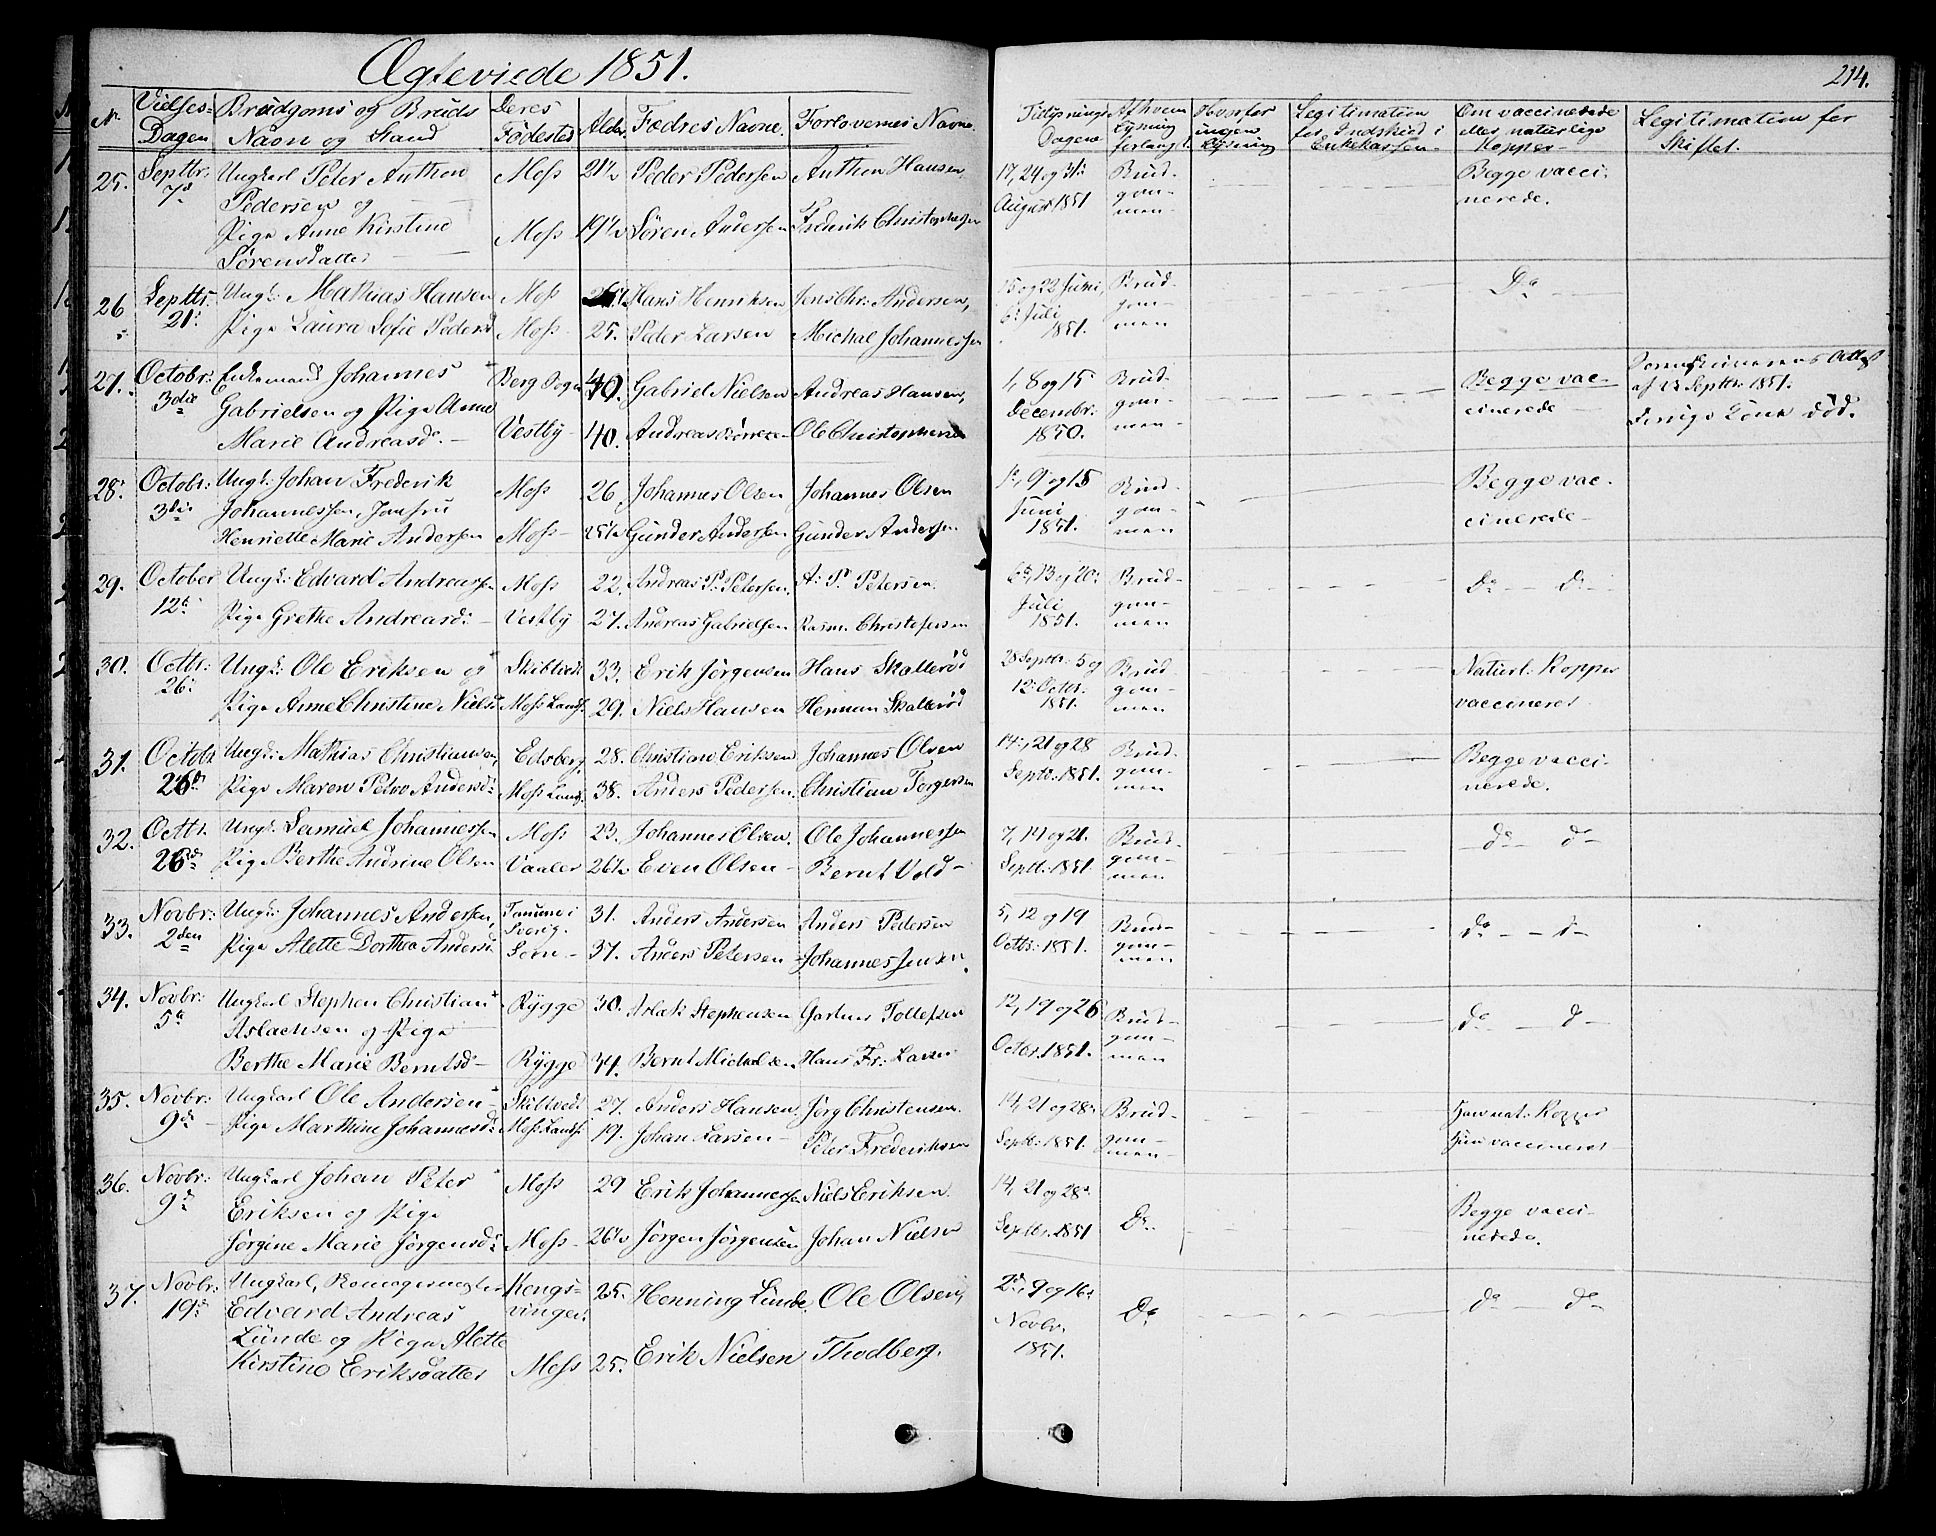 Ægteviede 1851.
214.
Nr. Vielses-Dagen Brudgoms og Bruds Navn og Stand Deres Fødested Alder. Fædres Navne. Forlovernes Navne. Tillysnings Dagene Af hvem Lysning forlangt. Hvorfor ingen Lysning Legitimation for Indskud i Enkekassen. Om vaccinerede eller naturlige Kopper Legitimation for Skiftet.
25. Septbr. 7d Ungkarl Peter Anthon Moss 21½ Peder Pedersen Anthon Hansen 17, 24 og 31 Brud- Begge vacci-
Pedersen og August 1851 gom- nerede.
Pige Anne Kirstine Moss 19½ Sören Andersen Frederik Christophersen men
Sörensdatter
26 Septbr. 21d Ungk: Mathias Hansen Moss Hans Henriksen Jens Chr: Andersen, 15 og 22 Juni, Brud- Do
Pige Laura Sofie Pedersd Moss 25. Peder Larsen Michal Johannessen 6 Juli 1851. gom- men
27. Octobr: 3die Enkemand Johannes Berg Sogn 40. Gabriel Nielsen Andreas Hansen, 1, 8 og 15 Brud- Begge vac-
Gabrielsen og Pige Anne Decembr. gom- cinerede
Marie Andreasd. Vestby 40. Andreas Ole Christophersen 1850. men
af 13 Septbr 1851. Kone død.
28. Octobr: 3die Ungk: Johan Frederik Moss 26 Johannes Olsen Johannes Olsen 1, 9 og 15 Brud- Begge vac-
Johannessen, Jomfru Juni gom- cinerede
Henriette Marie Andersen Moss 25½ Gunder Andersen Gunder Andersen 1851. men
29. October 12d Ungk: Edvard Andreassen Moss 22. Andreas P. Petersen. A: P. Petersen. 6, 13 og 20 Brud- Do Do
Pige Grethe Andreasd: Vestby 27. Andreas Gabrielsen Rasm. Christofersen Juli 1851. gom- men
30. Octbr: 26 Ungk: Ole Eriksen og Skibtvedt 33. Erik Jörgensen Hans Skallerød 28 Septbr: 5 og Brud- Naturl. Kopper
Pige Anne Christine Nielsd Moss Lands. 29. Niels Hansen Herman Skallerød 12 Octbr. 1851. gom- men vaccineret
31. Octobr 26d Ungk: Mathias Christiansen, Edsberg 28. Christian Eriksen Johannes Olsen 14, 21 og 28 Brud- Begge vacci-
Pige Maren Petra Andersd: Moss Lands. 38. Anders Pedersen. Christian Torgersen Septbr. 1851. gom- men nerede.
32. Octbr. 26d Ungk: Samuel Johannessen Moss 23. Johannes Olsen. Ole Johannessen 7, 14 og 21. Brud- do do
Pige Berthe Andrine Olsen Vaaler 26½ Even Olsen Bernt Vold Septbr. 1851. gom- men
33. Novbr: 2den Ungk: Johannes Andersen, Tanum i Sverig. 31. Anders Andersen Anders Pedersen 5, 12 og 19 Brud- do do
Pige Alette Dorthea Andersd Sorn 37. Anders Petersen Johannes Jensen. Octbr: 1851. gom- men
34. Novbr: 5d Ungkarl Stephen Christian Rygge 30. Aslak Stephensen Tollefsen 12, 19 og 26 Brud- do do
Aslachsen og Pige Octbr. 1851. gom-
Berthe Marie Berntsd Rygge 34. Bernt Michelsen, Hans Fr: Larsen men
35. Novbr: 9d Ungkarl Ole Andersen Skibtvedt 27. Anders Hansen, Jörg Christensen. 14, 21 og 28 Brud- Han nat. Kopper
Pige Marthine Johannesd: Moss Lands. 19. Johan Larsen Peter Frederiksen Septbr: 1851. gom- men Hun vaccineret
36. Novbr: 9d Ungkarl Johan Peter Moss 29 Erik Johannessen Niels Eriksen. 14, 21 og 28 Do. Begge vacci-
Eriksen og Pige Septbr. 1851 nerede.
Jörgine Marie Jörgensd: Moss 26½ Jörgen Jörgensen Johan Nielsen
37. Novbr: 19d Ungkarl, Kongs- 25. Henning Lunde. Ole Olsen, 2, 9 og 16 Do do do
Edvard Andreas vinger Novbr.
Lunde og Pige Alette 1851.
Kirstine Eriksdatter Moss 25. Erik Nielsen Thodberg.